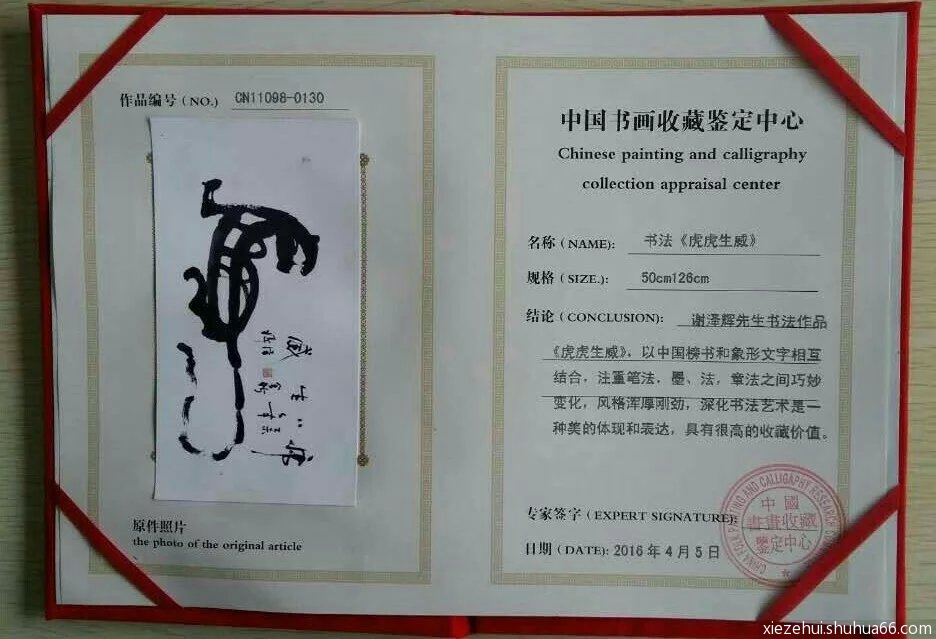 作品编号（NO.） CN11098-0130
原件照片
the photo of the original article
中国书画收藏鉴定中心
Chinese painting and calligraphy
collection appraisal center
名称（NAME）： 书法《虎虎生威》
规格（SIZE.）： 50cm126cm
结论（CONCLUSION）： 谢泽辉先生书法作品
《虎虎生威》，以中国榜书和象形文字相互
结合，注重笔法，墨、法，章法之间巧妙
变化，风格浑厚刚劲，深化书法艺术是一
种美的体现和表达，具有很高的收藏价值。
专家签字（EXPERT SIGNATURE）：
日期（DATE）：2016年4月5日
中國
書畫收藏
鑒定中心
xiezehuishuhua66.com